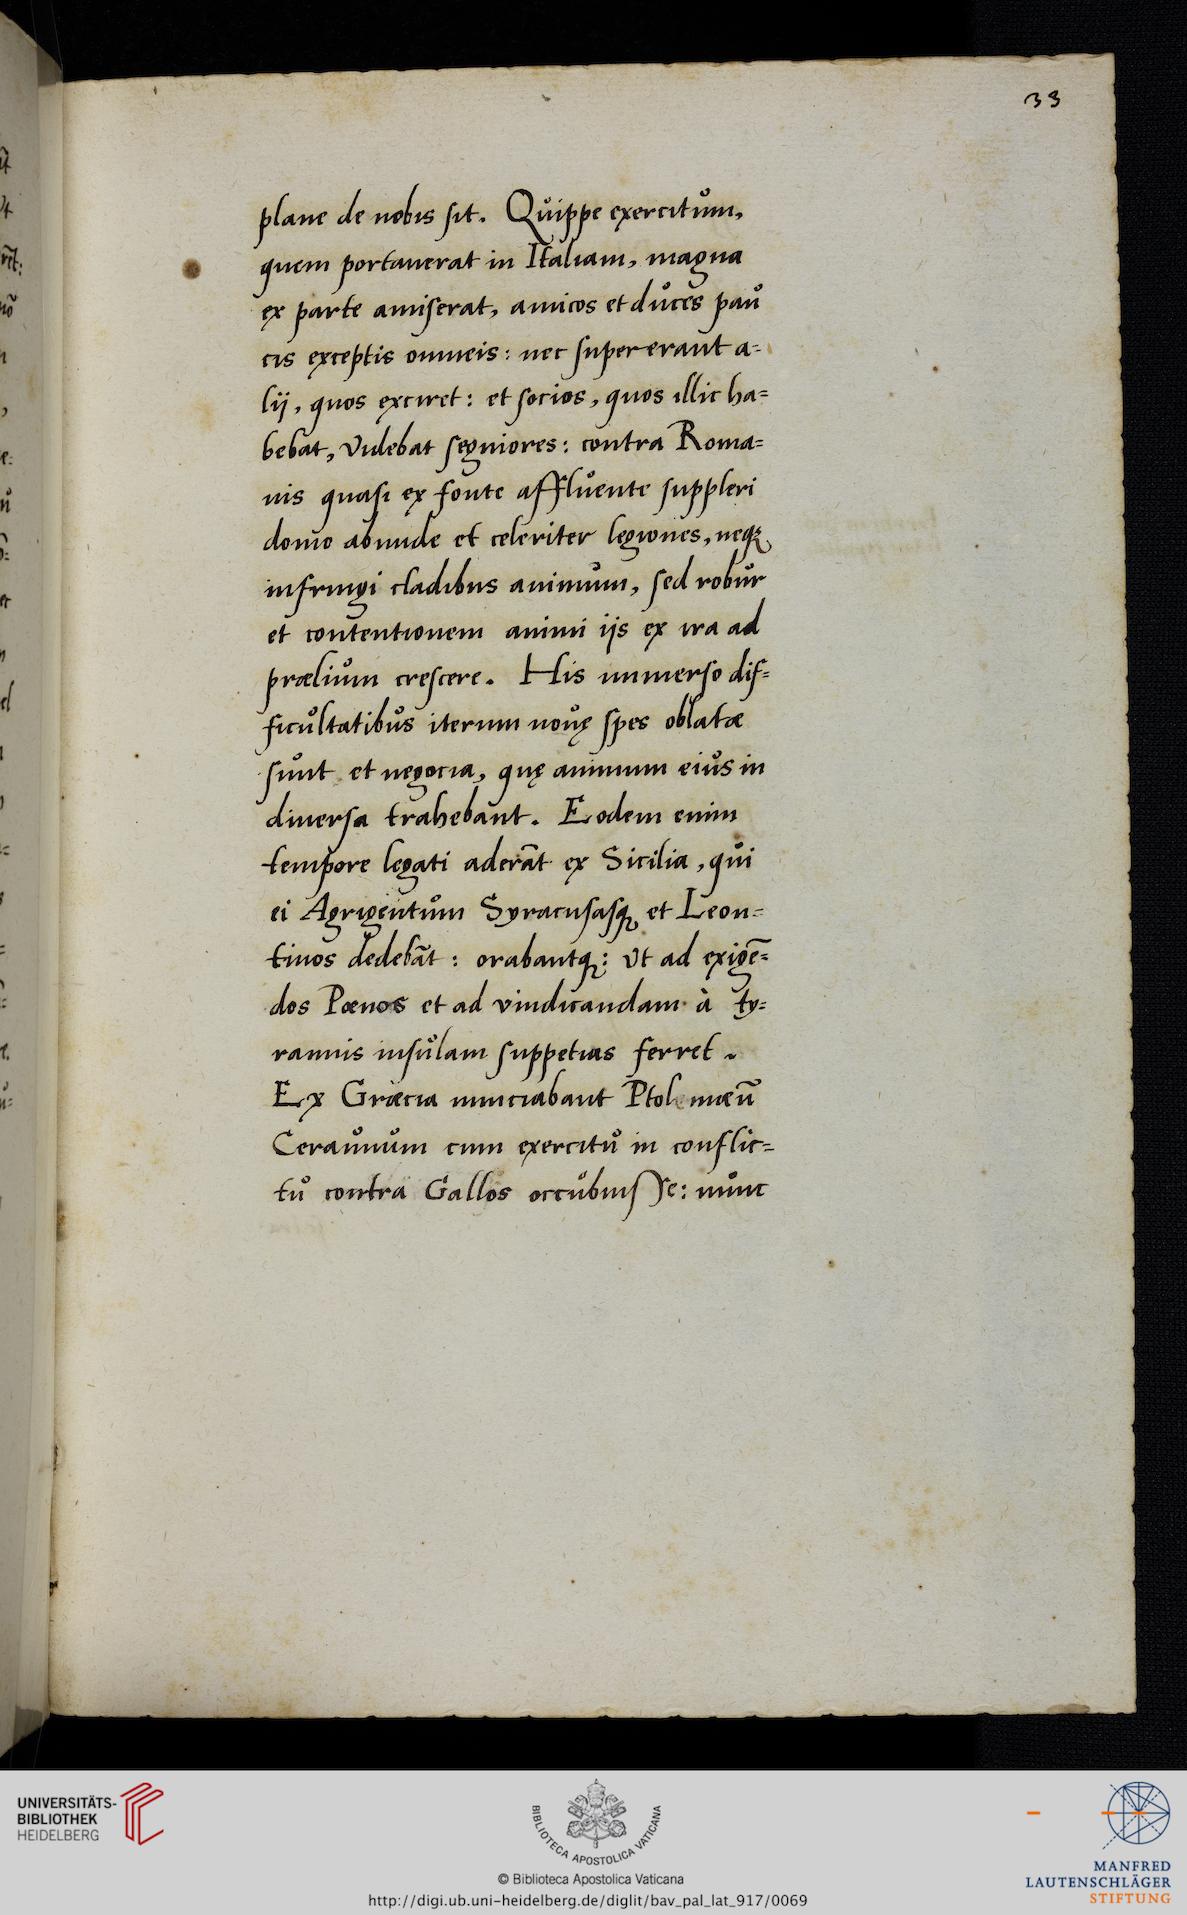 33
plane de nobis sit. Quippe exercitum,
quem portauerat in Italiam, magna
ex parte amiserat, amicos et duces pau
cis exceptis omneis: nec supererant a=
lij, quos exciret: et socios, quos illic ha=
bebat, videbat segniores: contra Roma=
nis quasi ex fonte affluente suppleri
domo abunde et celeriter legiones, neq;
infringi cladibus animum, sed robur
et contentionem animi ijs ex ira ad
prælium crescere. His immerso dif=
ficultatibus iterum nouę spes oblatæ
sunt et negocia, quę animum eius in
diuersa trahebant. Eodem enim
tempore legati aderāt ex Sicilia, qui
ei Agrigentum Syracusasq; et Leon=
tinos dedebāt: orabantq;: vt ad exigē=
dos Pœnos et ad vindicandam à ty=
rannis insulam suppetias ferret.
Ex Græcia nunciabant Ptolemæū
Ceraunum cum exercitu in conflic=
tu contra Gallos occubuisse: nunc
UNIVERSITÄTS-
BIBLIOTHEK
HEIDELBERG
BIBLIOTECA APOSTOLICA VATICANA
© Biblioteca Apostolica Vaticana
http://digi.ub.uni-heidelberg.de/diglit/bav_pal_lat_917/0069
MANFRED
LAUTENSCHLÄGER
STIFTUNG